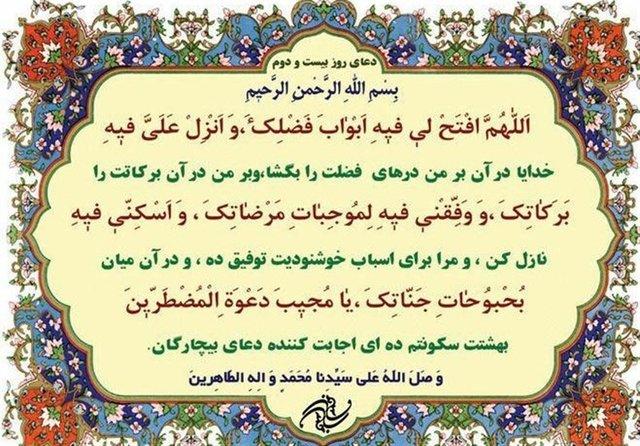 دعای روز بیست و دوم
بِسْمِ اللهِ الرَّحْمنِ الرَّحیمِ
اَللّٰهُمَّ افْتَحْ لي فيهِ اَبْوٰابَ فَضْلِکَ،وَ اَنْزِلْ عَلَیَّ فيهِ
خدایا در آن بر من درهای فضلت را بگشا،وبر من در آن برکاتت را
بَرَکٰاتِکَ،وَ وَفِّقْني فيهِ لِمُوجِبٰاتِ مَرْضٰاتِکَ، وَ اَسْکِنّي فيهِ
نازل کن ، و مرا برای اسباب خوشنودیت توفیق ده ، و در آن میان
بُحْبُوحٰاتِ جَنّٰاتِکَ،یٰا مُجیبَ دَعْوَةِ الْمُضْطَرّینَ
بهشتت سکونتم ده ای اجابت کننده دعای بیچارگان.
وَ صَلَ اللهُ عَلی سَیِّدِنا مُحَمَدٍ وَ الِهِ الطاهِرینَ